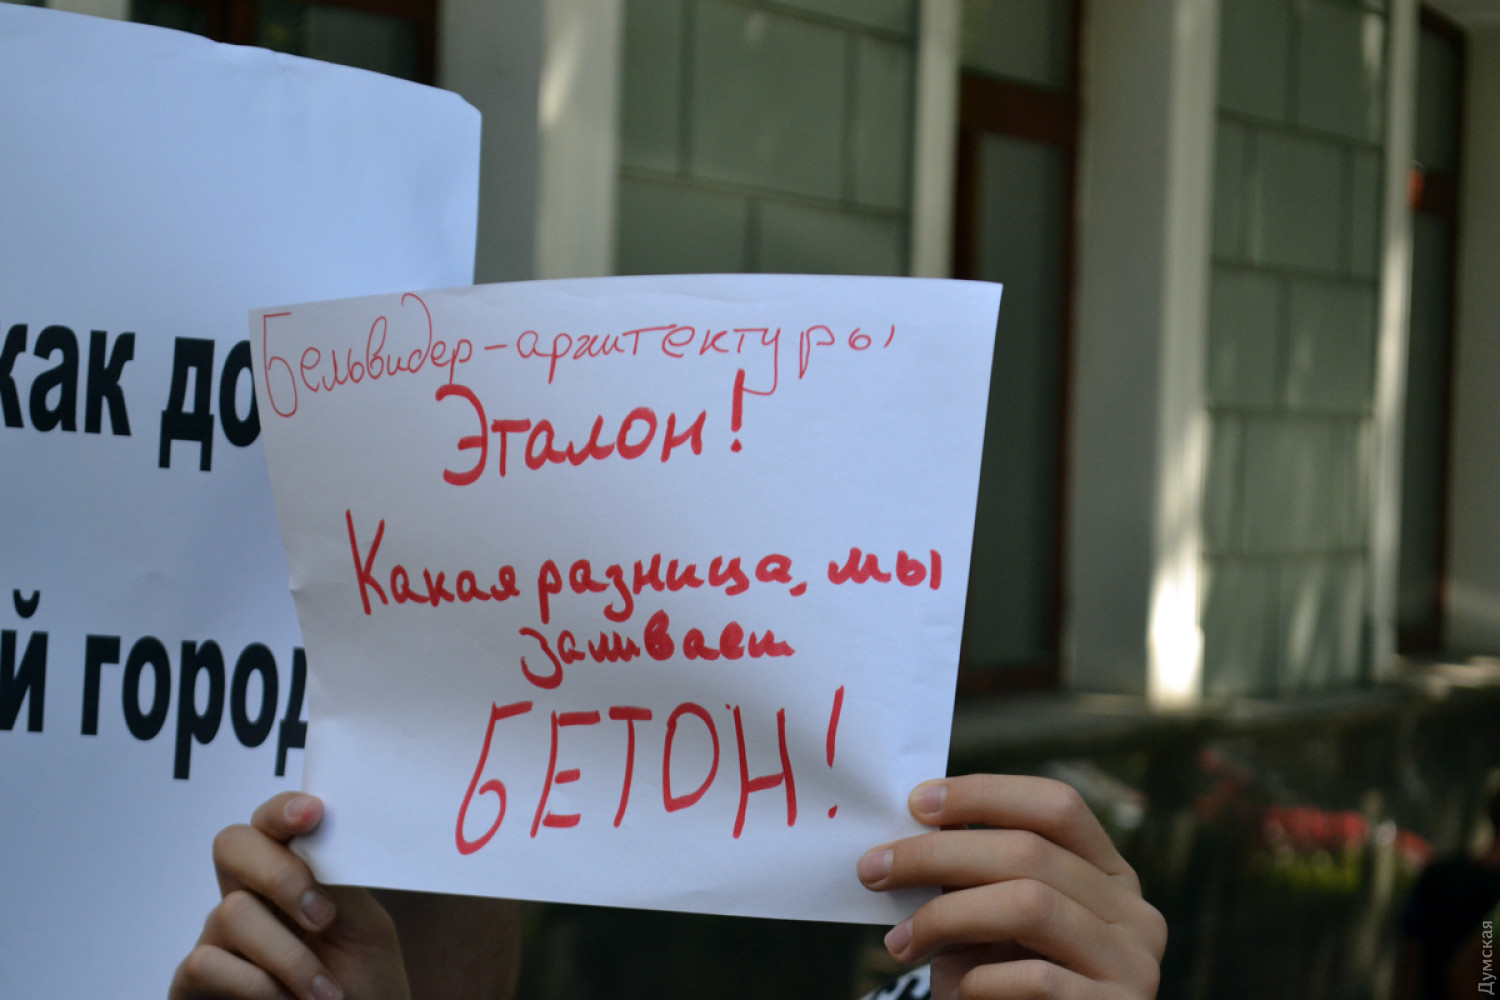 как до
й город
Бельвидер-архитектуры
Эталон!
Какая разница, мы
зашиваем
БЕТОН!
Думская